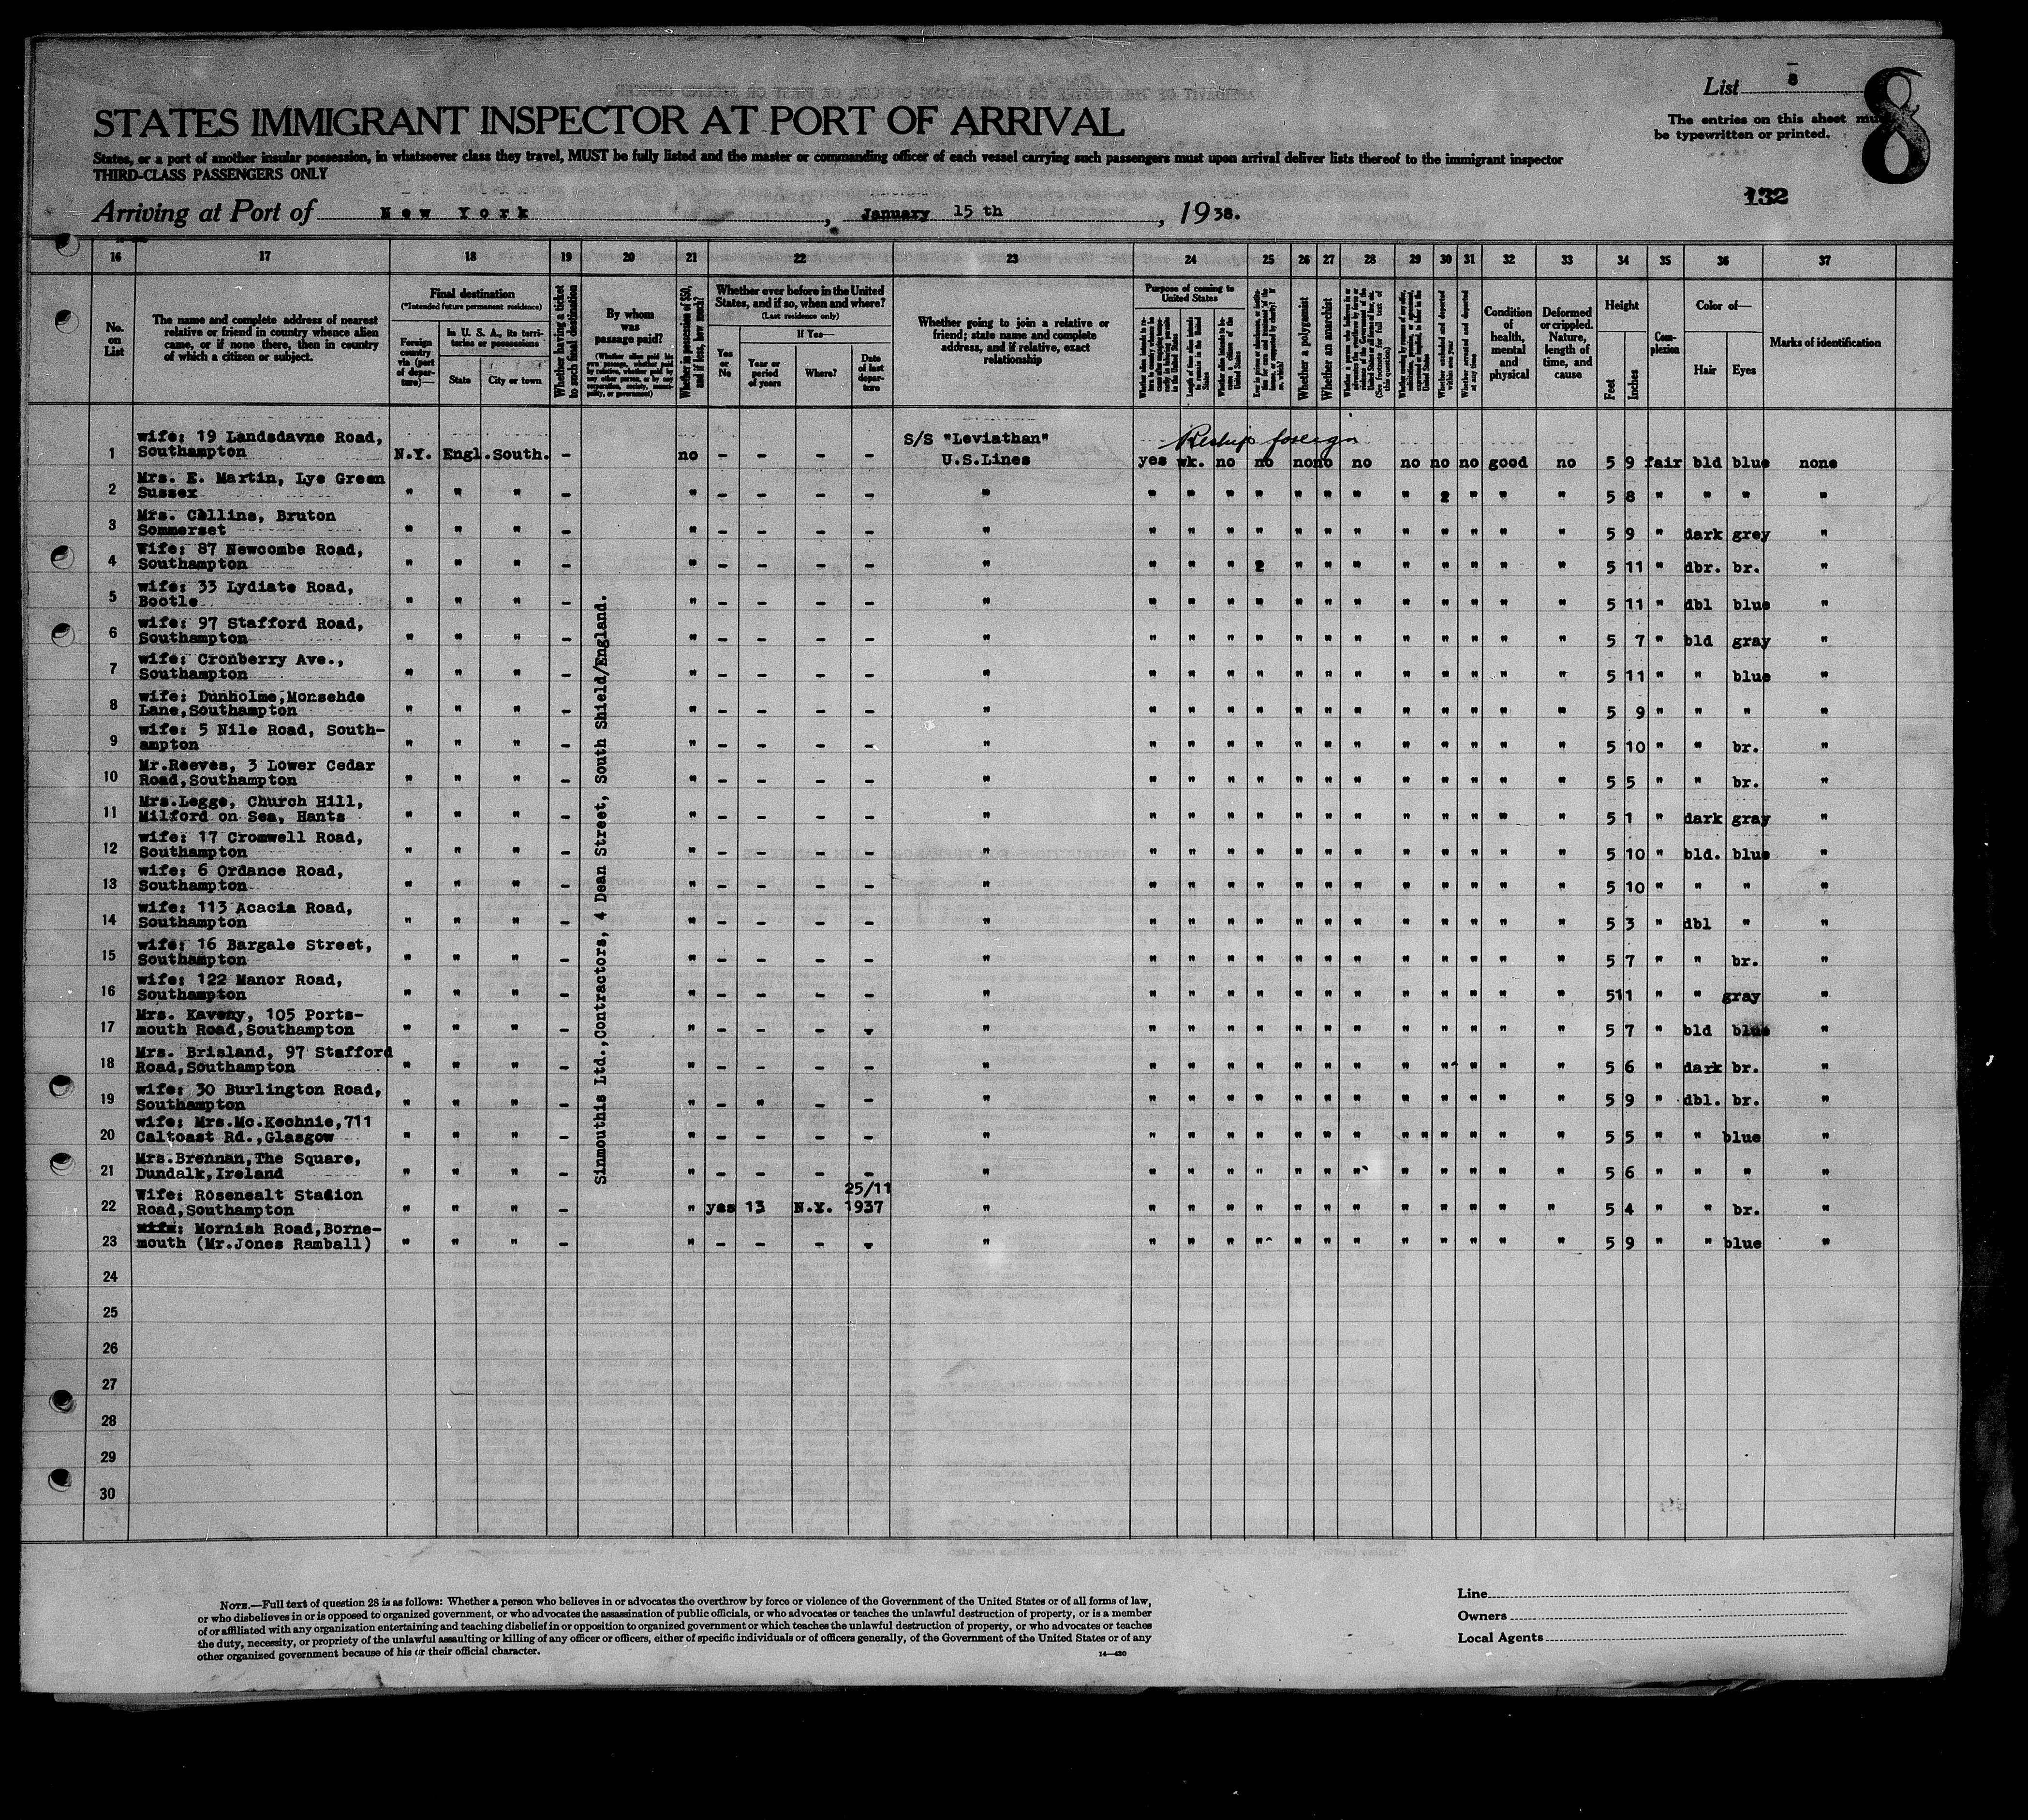 List 8
8
The entries on this sheet must
be typewritten or printed.
STATES IMMIGRANT INSPECTOR AT PORT OF ARRIVAL
States, or a port of another insular possession, in whatsoever class they travel, MUST be fully listed and the master or commanding officer of each vessel carrying such passengers must upon arrival deliver lists thereof to the immigrant inspector
THIRD-CLASS PASSENGERS ONLY
132
Arriving at Port of New York, January 15 th, 1938.
16 17 18 19 20 21 22 23 24 25 26 27 28 29 30 31 32 33 34 35 36 37
No. on List
The name and complete address of nearest relative or friend in country whence alien came, or if none there, then in country of which a citizen or subject.
Final destination
(*Intended future permanent residence)
Foreign country via (port of departure)—
In U. S. A., its territories or possessions
State
City or town
Whether having a ticket to such final destination
By whom was passage paid?
(Whether alien paid his own passage, whether paid by relative, whether paid by any other person, or by any corporation, society, municipality, or government)
Whether in possession of $50, and if less, how much?
Whether ever before in the United States, and if so, when and where?
(Last residence only)
Yes or No
If Yes—
Year or period of years
Where?
Date of last departure
Whether going to join a relative or friend; state name and complete address, and if relative, exact relationship
Purpose of coming to United States
Whether a polygamist
Whether an anarchist
Whether arrested and deported at any time
Condition of health, mental and physical
Deformed or crippled. Nature, length of time, and cause
Height
Feet
Inches
Complexion
Color of—
Hair
Eyes
Marks of identification
Reship foreign
1 wife: 19 Landsdavne Road, Southampton N.Y. Engl. South. – no – – – – S/S "Leviathan" U.S.Lines yes wk. no no no no no no no no good no 5 9 fair bld blue none
2 Mrs. E. Martin, Lye Green Sussex " " " – " – – – – " " " " " " " " " 2 " " " 5 8 " " " "
3 Mrs. Collins, Bruton Sommerset " " " – " – – – – " " " " " " " " " " " " " 5 9 " dark grey "
4 Wife: 87 Newcombe Road, Southampton " " " – " – – – – " " " " 2 " " " " " " " " 5 11 " dbr. br. "
5 wife: 33 Lydiate Road, Bootle " " " – " – – – – " " " " " " " " " " " " " 5 11 " dbl blue "
6 wife: 97 Stafford Road, Southampton " " " – " – – – – " " " " " " " " " " " " " 5 7 " bld gray "
7 wife: Cronberry Ave., Southampton " " " – " – – – – " " " " " " " " " " " " " 5 11 " " blue "
8 wife: Dunholme,Monsehde Lane,Southampton " " " – " – – – – " " " " " " " " " " " " " 5 9 " " " "
9 wife: 5 Nile Road, Southampton " " " – " – – – – " " " " " " " " " " " " " 5 10 " " br. "
10 Mr.Reeves, 3 Lower Cedar Road,Southampton " " " – " – – – – " " " " " " " " " " " " " 5 5 " " br. "
11 Mrs.Legge, Church Hill, Milford on Sea, Hants " " " – " – – – – " " " " " " " " " " " " " 5 1 " dark gray "
12 wife: 17 Cromwell Road, Southampton " " " – " – – – – " " " " " " " " " " " " " 5 10 " bld. blue "
13 wife: 6 Ordance Road, Southampton " " " – " – – – – " " " " " " " " " " " " " 5 10 " " " "
14 wife: 113 Acacia Road, Southampton " " " – " – – – – " " " " " " " " " " " " " 5 3 " dbl " "
15 wife: 16 Bargale Street, Southampton " " " – " – – – – " " " " " " " " " " " " " 5 7 " " br. "
16 wife: 122 Manor Road, Southampton " " " – " – – – – " " " " " " " " " " " " " 5 11 " " gray "
17 Mrs. Kaveny, 105 Portsmouth Road,Southampton " " " – " – – – – " " " " " " " " " " " " " 5 7 " bld blue "
18 Mrs. Brisland, 97 Stafford Road,Southampton " " " – " – – – – " " " " " " " " " " " " " 5 6 " dark br. "
19 wife: 30 Burlington Road, Southampton " " " – " – " – – " " " " " " " " " " " " " 5 9 " dbl. br. "
20 wife: Mrs.Mc.Kechnie,711 Caltoast Rd.,Glasgow " " " – " – – – – " " " " " " " " " " " " " " 5 5 " " blue "
21 Mrs.Brennan,The Square, Dundalk,Ireland " " " – " – – – – " " " " " " " " " " " " " 5 6 " " " "
22 Wife: Rosenealt Stadion Road,Southampton " " " – " yes 13 N.Y. 25/11 1937 " " " " " " " " " " " " " 5 4 " " br. "
23 wife: Mornish Road,Bornemouth (Mr.Jones Ramball) " " " – " – – – – " " " " " " " " " " " " " 5 9 " " blue "
24
25
26
27
28
29
30
Sinmouthis Ltd.,Contractors, 4 Dean Street, South Shield/England.
NOTE.—Full text of question 28 is as follows: Whether a person who believes in or advocates the overthrow by force or violence of the Government of the United States or of all forms of law,
or who disbelieves in or is opposed to organized government, or who advocates the assassination of public officials, or who advocates or teaches the unlawful destruction of property, or is a member
of or affiliated with any organization entertaining and teaching disbelief in or opposition to organized government or which teaches the unlawful destruction of property, or who advocates or teaches
the duty, necessity, or propriety of the unlawful assaulting or killing of any officer or officers, either of specific individuals or of officers generally, of the Government of the United States or of any
other organized government because of his or their official character.
14—430
Line
Owners
Local Agents